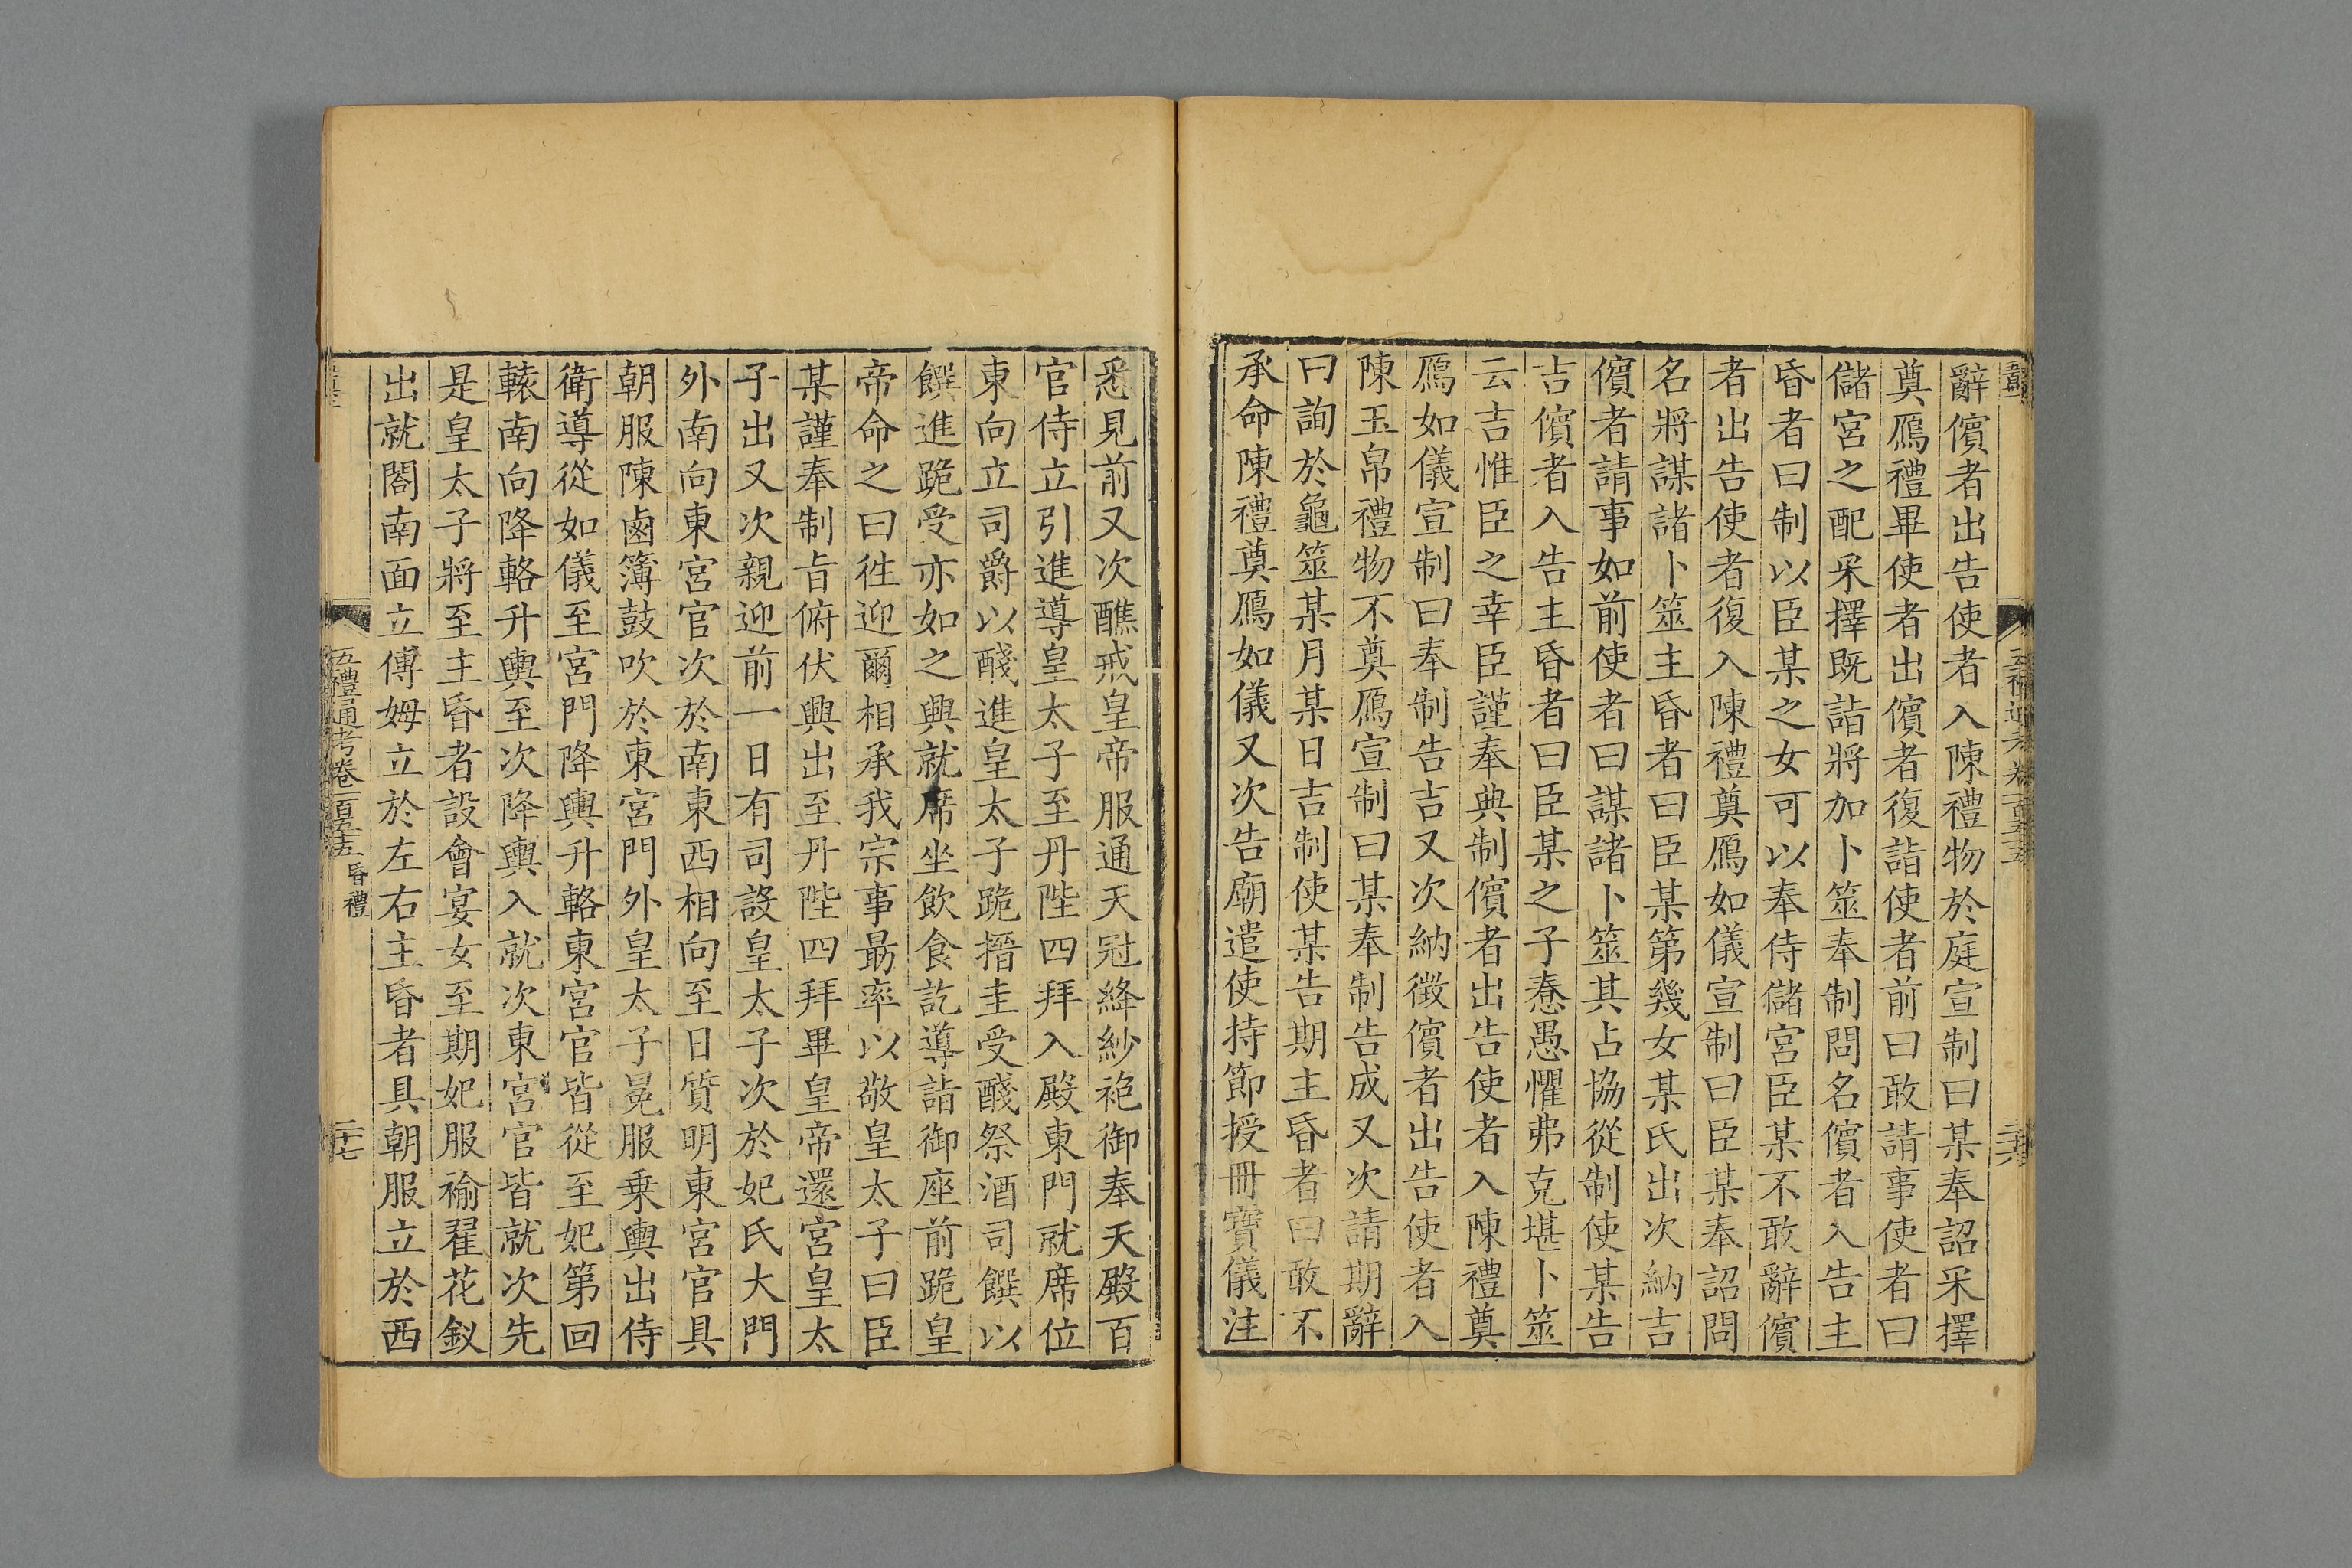 辭儐者出告使者入陳禮物於庭宣制曰某奉詔采擇
奠鴈禮畢使者出儐者復詣使者前曰敢請事使者曰
儲宮之配采擇既諧將加卜筮奉制問名儐者入告主
昏者曰制以臣某之女可以奉侍儲宮臣某不敢辭儐
者出告使者復入陳禮奠鴈如儀宣制曰臣某奉詔問
名將謀諸卜筮主昏者曰臣某第幾女某氏出次納吉
儐者請事如前使者曰謀諸卜筮其占協從制使某告
吉儐者入告主昏者曰臣某之子惷愚懼弗克堪卜筮
云吉惟臣之幸臣謹奉典制儐者出告使者入陳禮奠
鴈如儀宣制曰奉制告吉又次納徵儐者出告使者入
陳玉帛禮物不奠鴈宣制曰某奉制告成又次請期辭
曰詢於龜筮某月某日吉制使某告期主昏者曰敢不
承命陳禮奠鴈如儀又次告廟遣使持節授冊寶儀注
悉見前又次醮戒皇帝服通天冠絳紗袍御奉天殿百
官侍立引進導皇太子至丹陛四拜入殿東門就席位
東向立司爵以醆進皇太子跪搢圭受醆祭酒司饌以
饌進跪受亦如之興就席坐飲食訖導詣御座前跪皇
帝命之曰徃迎爾相承我宗事勗率以敬皇太子曰臣
某謹奉制旨俯伏興出至丹陛四拜畢皇帝還宮皇太
子出又次親迎前一日有司設皇太子次於妃氏大門
外南向東宮官次於南東西相向至日質明東宮官具
朝服陳鹵簿鼓吹於東宮門外皇太子冕服乗輿出侍
衛導從如儀至宮門降輿升輅東宮官皆從至妃第回
轅南向降輅升輿至次降輿入就次東宮官皆就次先
是皇太子將至主昏者設會宴女至期妃服褕翟花釵
出就閤南面立傅姆立於左右主昏者具朝服立於西
五禮通考卷一百五十五 昏禮
二十七